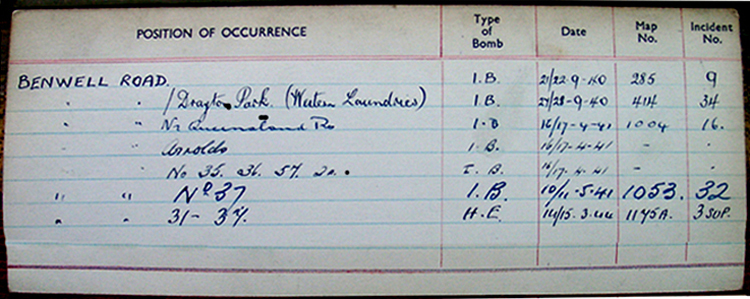 POSITION OF OCCURRENCE Type of Bomb Date Map No. Incident No.
BENWELL ROAD. I.B. 21/22-9-40 285 9
" " / Drayton Park. (Western Laundries) I.B. 27/28-9-40 414 34
" " Nr Queensland Rd I.B 16/17-4-41 1004 16.
" " Arnolds I.B. 16/17-4-41 - -
" " No 35. 36. 57. 20. I.B. 16/17.4.41 - -
" " No 37 I.B. 10/11-5-41 1053. 32
" " 31-37. H.E. 14/15.3.44 1175A. 3 SUP.